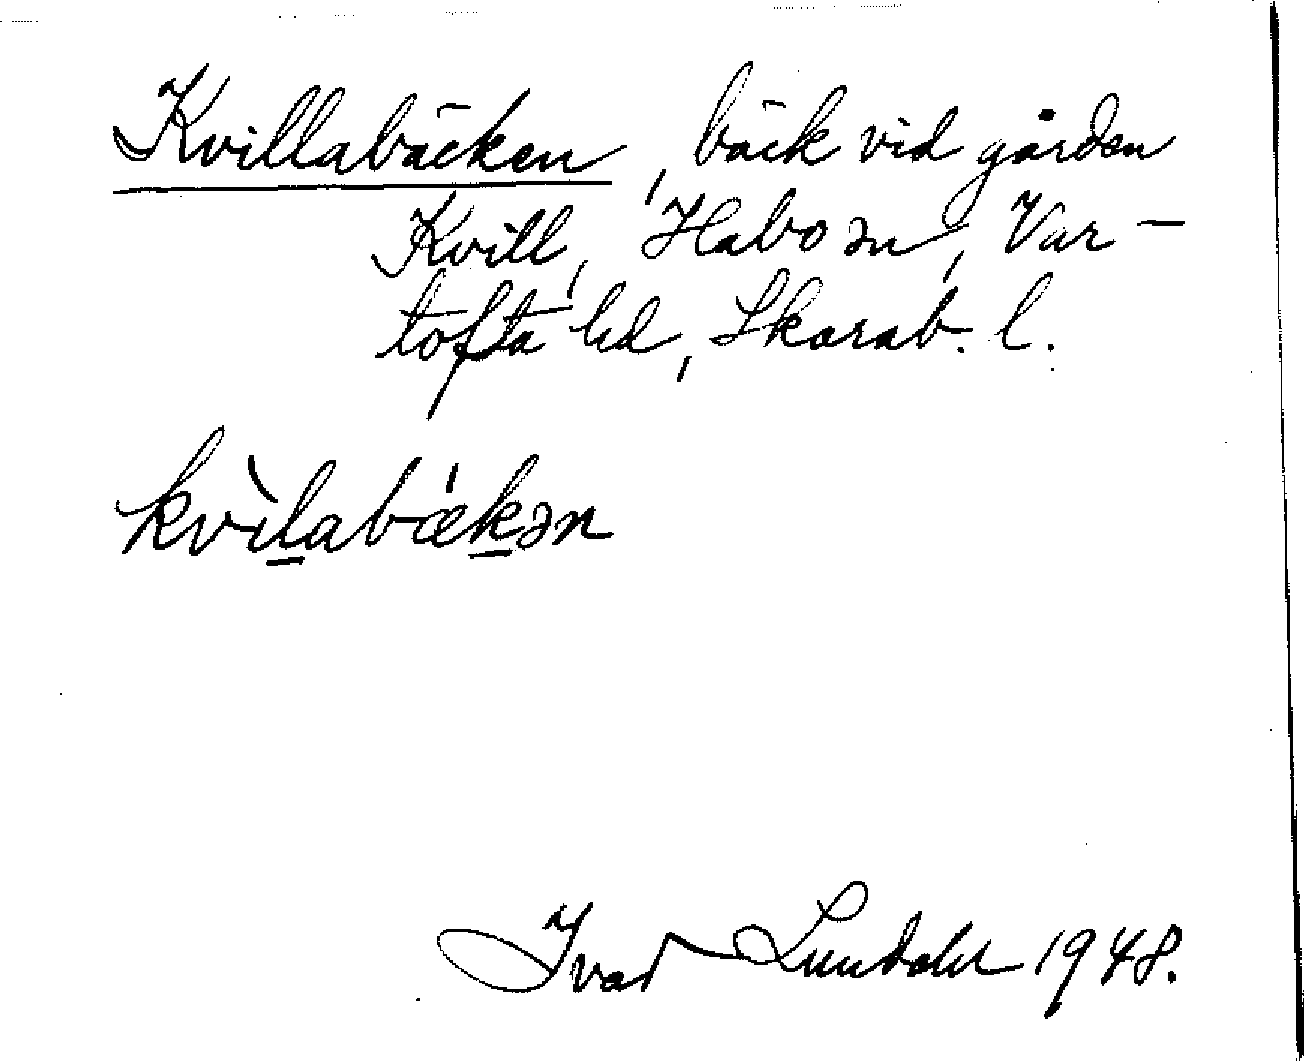 Kvillabäcken, bäck vid gården
Kvill, Habo sn, Var-
tofta hd, Skarab. l.
kvìl̲abǽk̲ən
Ivar Lundahl 1948.